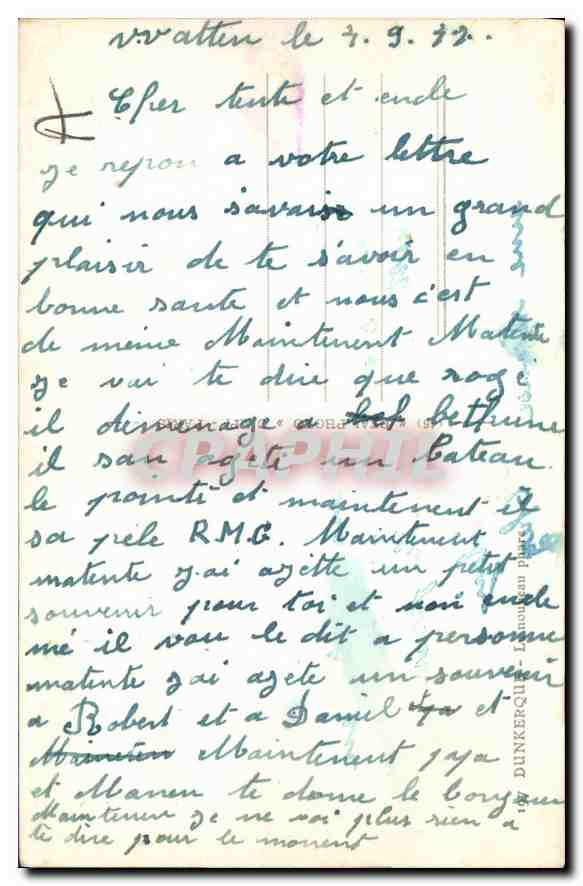 vvatten le 7.9.72.
Cher tente et oncle
je repon a votre lettre
qui nous savais un grand
plaisir de te s'avoir en
bonne sante et nous c'est
de meme Maintenent Matente
je vai te dire que roge
il dimenage a bethune
il san agete un bateau
le pointé et maintenent il
sa pele R.M.C. Maintenent
matente j.ai azette un petit
souvenir pour toi et non oncle
mé il vou le dit a personne
matente j'ai azete un souvenir
a Robert et a Daniel et
Maintenent papa
et Manen te done le bonjour
Maintenent je ne voi plus rien a
te dire pour le moment
CRAPHIL
197 DUNKERQUE - Le nouveau phare
« REAL-PHOTO » C.A.P. - PARIS